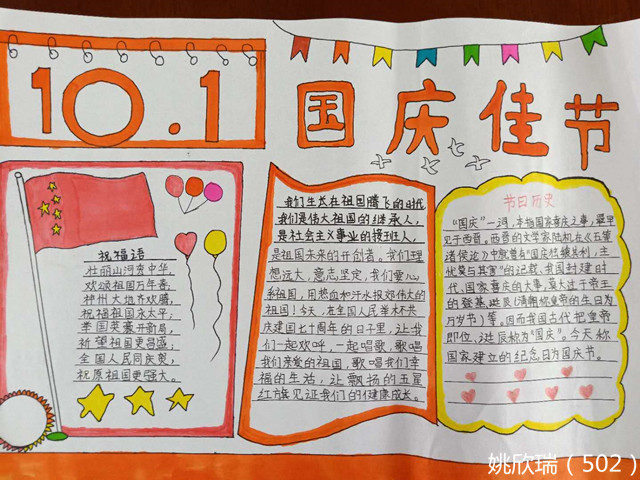 10.1
国庆佳节
祝福语
壮丽山河育中华,
欢颂祖国万年春;
神州大地齐欢腾,
祝福祖国永太平;
举国英豪开新局,
祈望祖国更昌盛;
全国人民同庆贺,
祝愿祖国更强大。
我们生长在祖国腾飞的时代,
我们是伟大祖国的继承人,
是社会主义事业的接班人,
是祖国未来的开创者。我们理
想远大,意志坚定,我们童心
系祖国,用热血和汗水报效伟大的
祖国!今天,在全国人民举杯共
庆建国七十周年的日子里,让我
们一起欢呼,一起唱歌,歌唱
我们亲爱的祖国,歌唱我们幸
福的生活,让飘扬的五星
红旗见证我们的健康成长。
节日历史
“国庆”一词,本指国家喜庆之事,最早
见于西晋。西晋的文学家陆机在《五等
诸侯论》中就曾有“国庆独飨其利,主
忧莫与其害”的记载、我国封建时
代、国家喜庆的大事,莫大过于帝王
的登基、诞辰(清朝称皇帝的生日为
万岁节)等。因而我国古代把皇帝
即位、诞辰称为“国庆”。今天称
国家建立的纪念日为国庆节。
姚欣瑞(502)